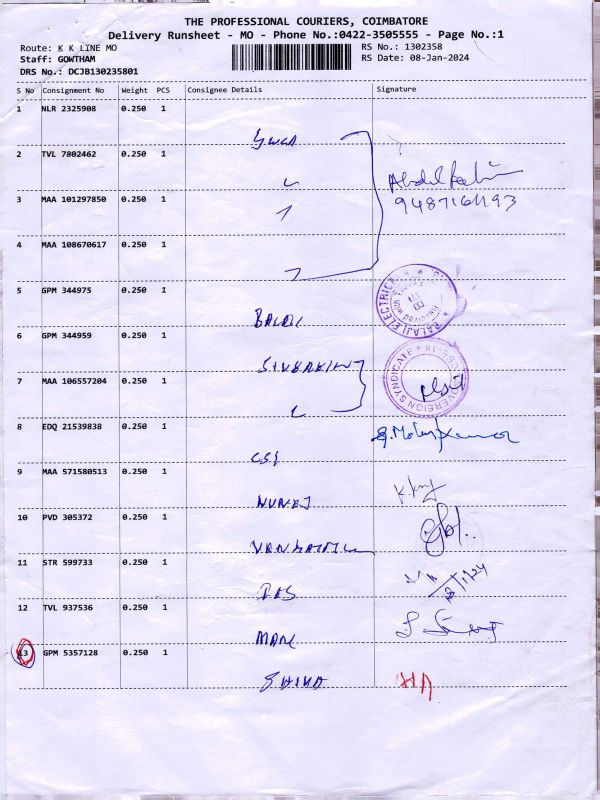 THE PROFESSIONAL COURIERS, COIMBATORE
Delivery Runsheet - MO - Phone No.:0422-3505555 - Page No.:1
Route: K K LINE MO
Staff: GOWTHAM
DRS No.: DCJB130235801
RS No.: 1302358
RS Date: 08-Jan-2024
S No Consignment No Weight PCS Consignee Details Signature
1 NLR 2325908 0.250 1
2 TVL 7802462 0.250 1
3 MAA 101297850 0.250 1
4 MAA 108670617 0.250 1
5 GPM 344975 0.250 1
BALAJI ELECTRICA
6 GPM 344959 0.250 1
7 MAA 106557204 0.250 1
SOVEREIGN SYNDICATE CBE-18
8 EDQ 21539838 0.250 1
CSI
9 MAA 571580513 0.250 1
10 PVD 305372 0.250 1
11 STR 599733 0.250 1
8/1/24
12 TVL 937536 0.250 1
MANI
13 GPM 5357128 0.250 1
SHIVA